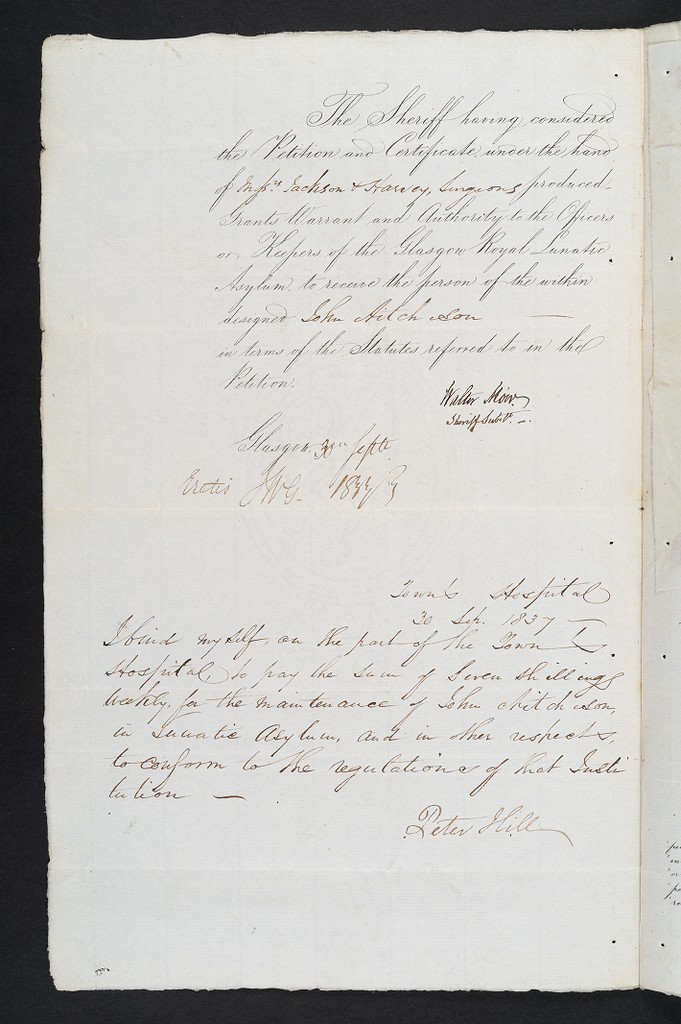 The Sheriff having considered
the Petition and Certificate under the hand
of Messrs Jackson & Harvey, Surgeons produced
Grants Warrant and Authority to the Officers
or Keepers of the Glasgow Royal Lunatic
Asylum to receive the person of the within
designed John Aitchison —
in terms of the Statutes referred to in the
Petition.
Walter Moir
Sheriff Subt. —
Glasgow 30th Septr.
1837
Town's Hospital
30 Sep. 1837 —
I bind myself, on the part of the Town's
Hospital to pay the sum of Seven shillings
weekly, for the maintenance of John Aitchison,
in Lunatic Asylum, and in other respects,
to conform to the regulations of that Insti
tution —
Peter Hill